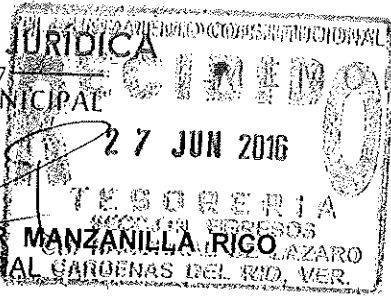 H. AYUNTAMIENTO CONSTITUCIONAL
JURIDICA
RECIBIDO
NICIPAL
27 JUN 2016
TESORERIA
EGRESOS
MANZANILLA RICO
LAZARO
AL CARDENAS DEL RIO, VER.